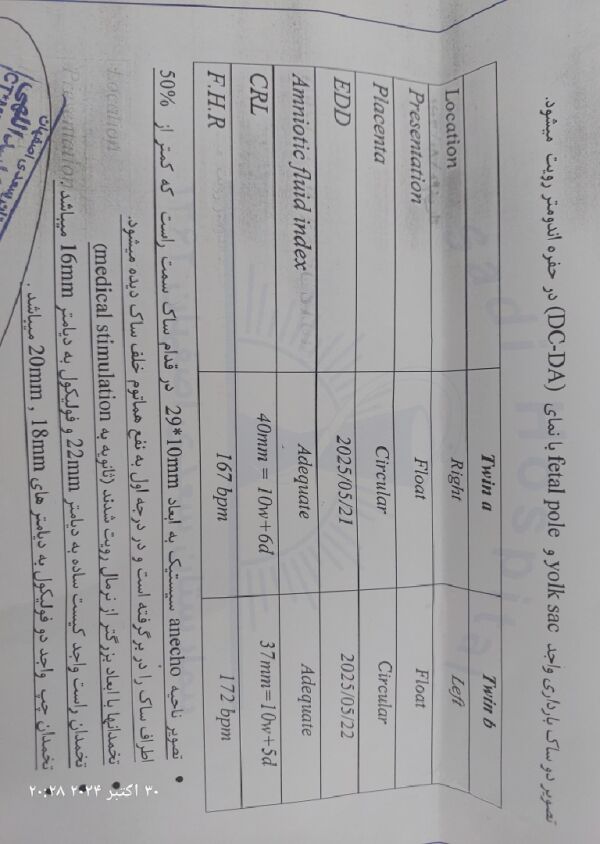 تصویر دو ساک بارداری واجد yolk sac و fetal pole با نمای (DC-DA) در حفره اندومتر رویت میشود.
Twin a Twin b
Location Right Left
Presentation Float Float
Placenta Circular Circular
EDD 2025/05/21 2025/05/22
Amniotic fluid index Adequate Adequate
CRL 40mm = 10w+6d 37mm=10w+5d
F.H.R 167 bpm 172 bpm
• تصویر ناحیه anecho سیستیک به ابعاد 29*10mm در قدام ساک سمت راست که کمتر از 50%
اطراف ساک را در برگرفته است و در درجه اول به نفع هماتوم خلف ساک دیده میشود.
• تخمدانها با ابعاد بزرگتر از نرمال رویت شدند (ثانویه به medical stimulation)
• تخمدان راست واجد کیست ساده به دیامتر 22mm و فولیکول به دیامتر 16mm میباشد
تخمدان چپ واجد دو فولیکول به دیامتر های 18mm , 20mm میباشد.
Location
Presentation
Sadi Hospital
۳۰ اکتبر ۲۰۲۴ ۲۰:۲۸